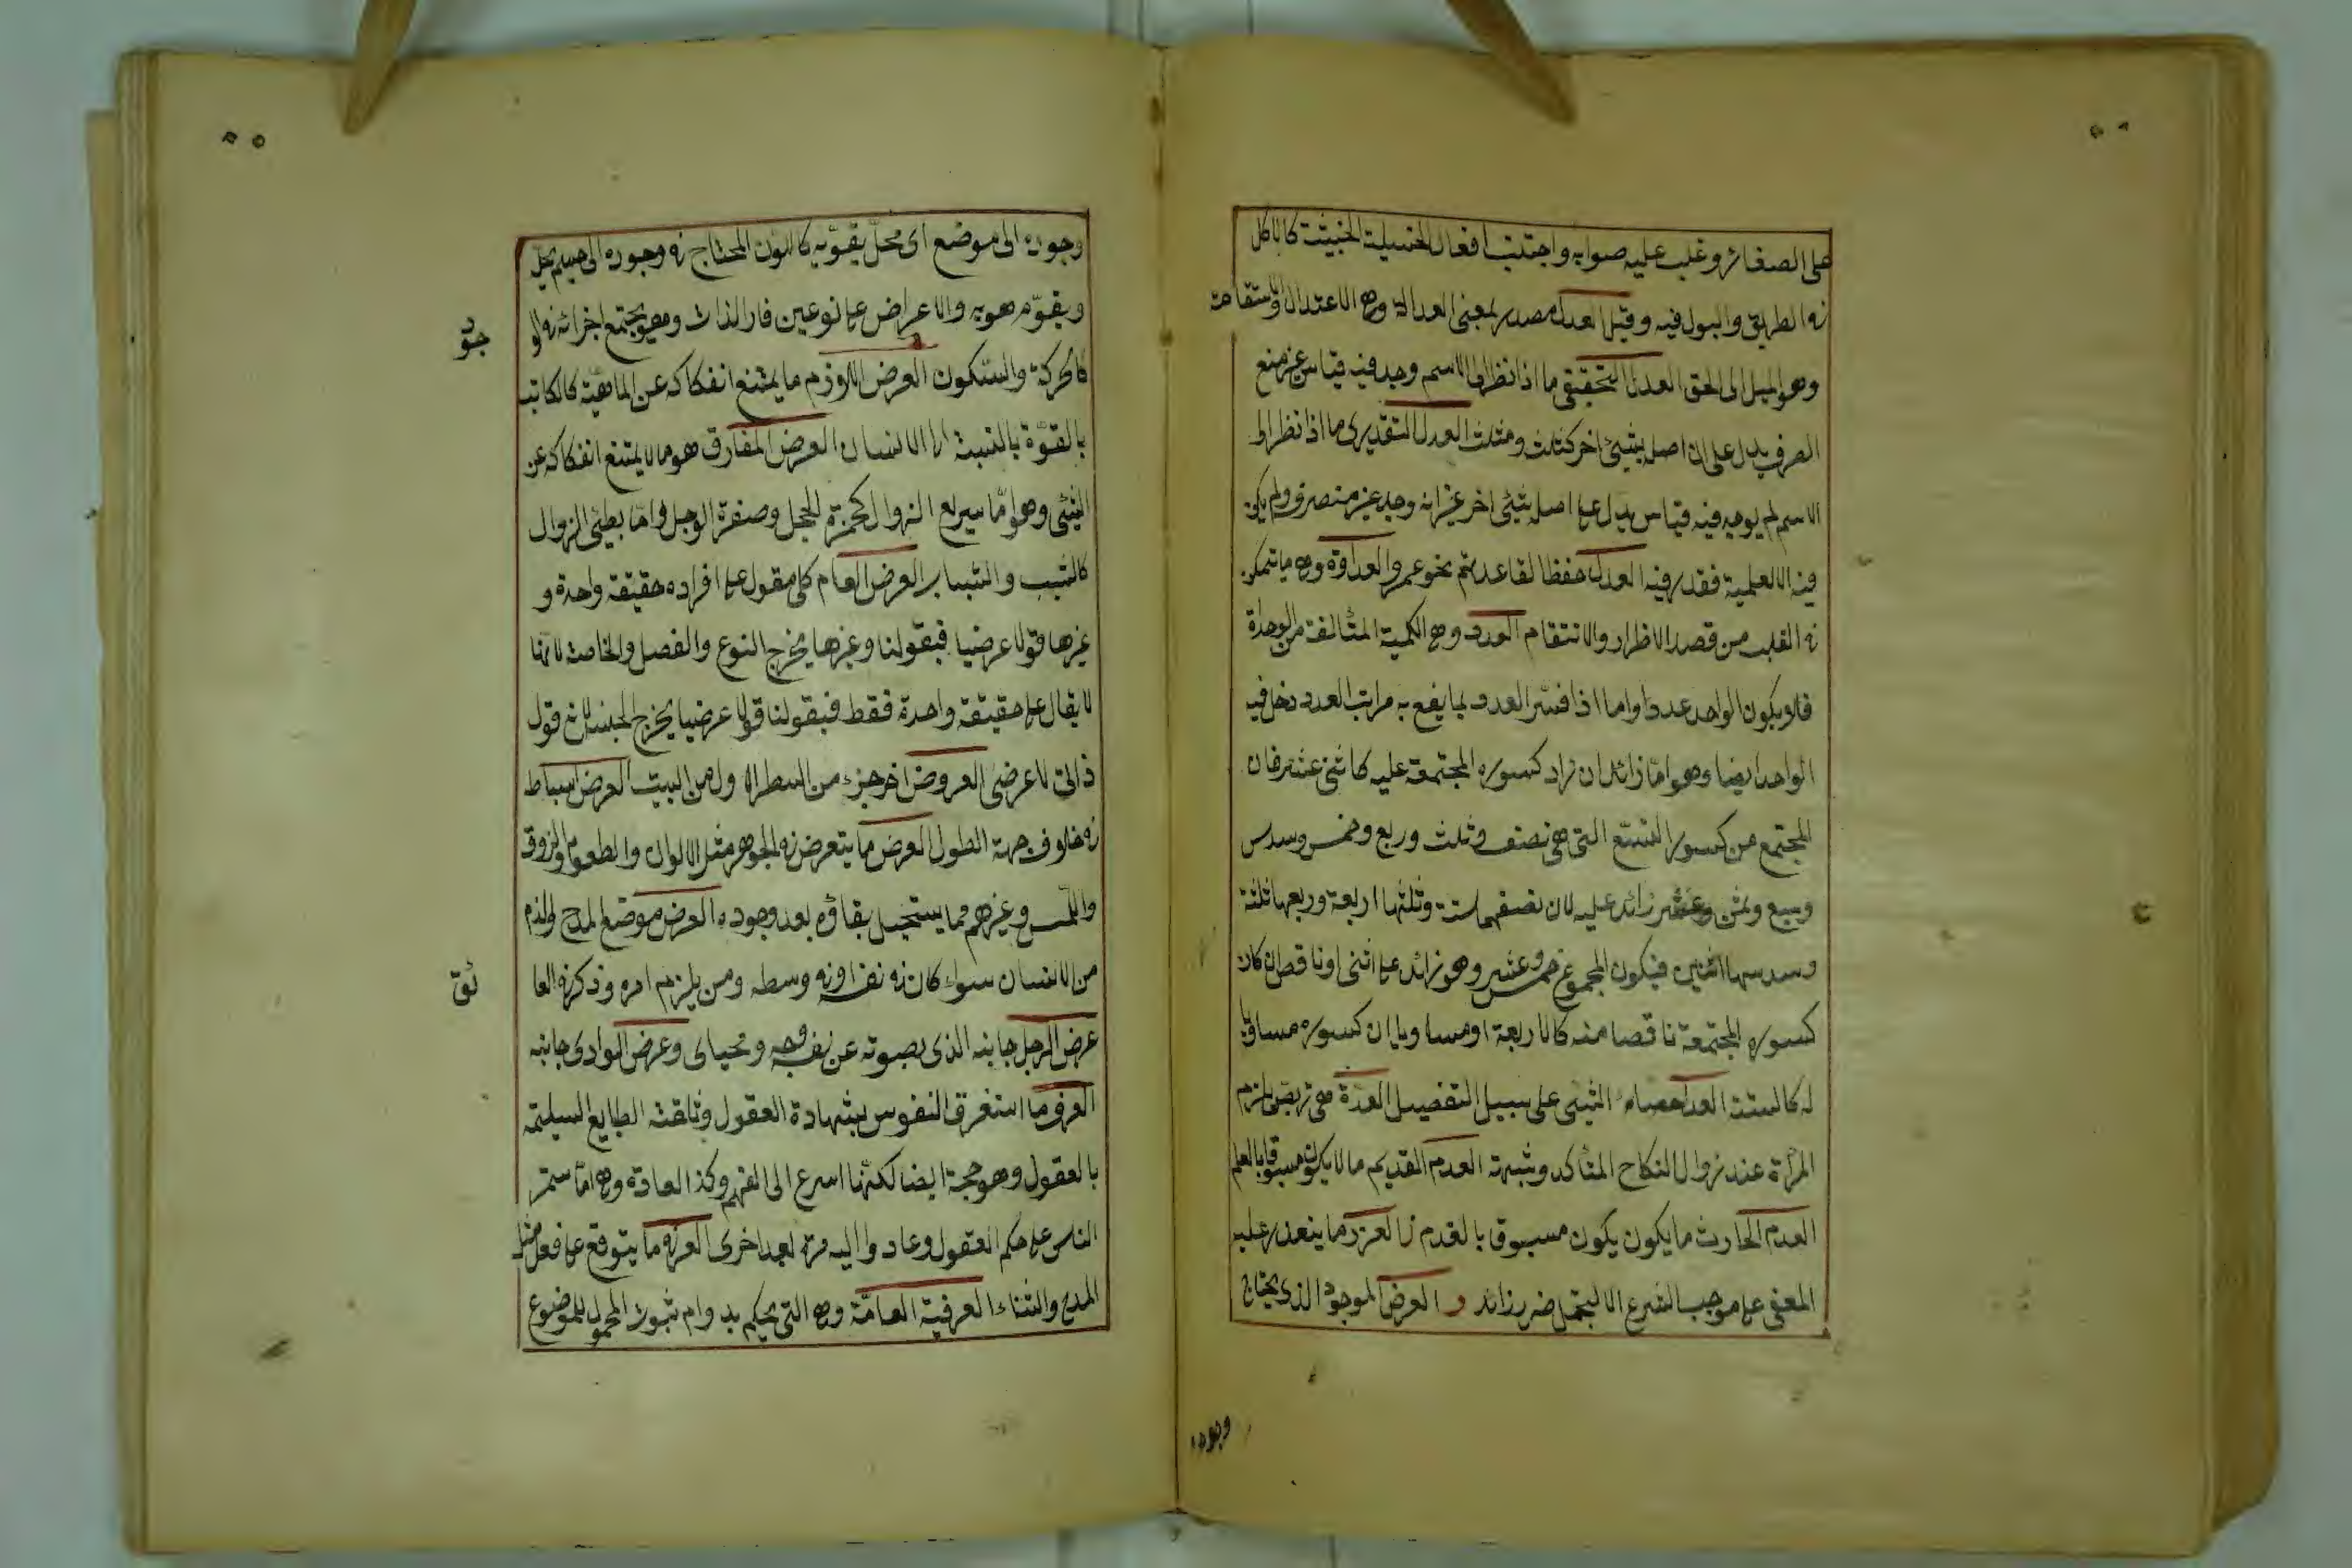 على الصغائر وغلب عليه صوابه واجتنب افعال الخسيلة الخبيثة كالاكل
فى الطريق والبول فيه وقيل العدل مصدر بمعنى العدالة وهى الاعتدال والاستقامة
وهو الميل الى الحق العدل التحقيقى ما اذا نظر الى الاسم وجد فيه قياس غير منع
الصرف يدل على ان اصله شيئ اخر كثلث ومثلث العدل التقديرى ما اذا نظر الى
الاسم لم يوجد فيه قياس يدل على اصله شيئ اخر غير انه وجد غير منصرف ولم يكن
فيه الا العلمية فقدر فيه العدل حفظا لقاعدتهم نحو عمر والعداوة وهى ما يتمكن
فى القلب من قصد الاظرار والانتقام العدد وهى الكمية المتالفة من الوحدة
فلا يكون الواحد عددا واما اذا فسّر العدد بما يقع به مراتب العدد دخل فيه
الواحد ايضا وهو امّا زائد ان زاد كسوره المجتمعة عليه كاثنى عشر فان
المجتمع من كسوره التسع التى هى نصف وثلث وربع وخمس وسدس
وسبع وثمن وعشر زائد عليه لان نصفهما ستة وثلثها اربعة وربعها ثلثة
وسدسها اثنين فيكون المجموع خمس وعشر وهو زائد على اثنى او ناقص ان كان
كسوره المجتمعة ناقصا منه كالاربعة او مساويا ان كسوره مساويا
له كالستة العد احصاء الشيئ على سبيل التفصيل العدّة هى تربص يلزم
المرأة عند زوال النكاح المتاكد وشبهة العدم القديم ما لا يكون مسبوقا بالعلم
العدم الحارث ما يكون يكون مسبوق بالقدم العزر ما يتعذر عليه
المعنى على موجب الشرع الا لتجمل ضرر زائد و العرض الموجود الذى يحتاج
وجوده
وجوده الى موضع اى محلّ يقوّيه كاللون المحتاج فى وجوده الى جسم يحلّ
ويقوّم هو به والاعراض على نوعين قار الذات وهو يجتمع اجزائه فى الو
جود
كالحركة والسّكون العرض اللازم ما يمتنع انفكاكه عن الماهيّة كالكاتب
بالقوّة بالنسبة الى الانسان العرض المفارق هو ما لا يمتنع انفكاكه عن
الشيئ وهو امّا سريع الزوال كحمرة الخجل وصفرة الوجل وامّا بطيئ الزوال
كالشيب والشباب العرض العام كلى مقول على افراد حقيقة واحدة و
غيرها قولا عرضيا فبقولنا وغيرها يخرج النوع والفصل والخاصة لانّها
لا يقال على حقيقة واحدة فقط فبقولنا قولا عرضيا يخرج الجنس لانه قول
ذاتى لا عرضى العروض اخر جزء من السطر الاول من البيت العرض انبساط
فى خلاف جهة الطول العرض ما يتعرض فى الجوهر مثل الالوان والطعوم والذوق
واللمس وغيرهم مما يستحيل بقاؤه بعد وجوده العرض موضع المدح والذم
من الانسان سواء كان فى نفسه او فى وسطه ومن يلزم امره وذكر فى العا
ئق
عرض الرجل جانبه الذى يصونه عن نفسه ومحياى وعرض الوادى جانبه
العرف ما استغرق النفوس بشهادة العقول وتلقته الطبايع السليمة
بالعقول وهو حجة ايضا لكنّها اسرع الى الفهم وكذا العادة وهى امّا ستمر
الناس على حكم العقول وعادوا اليه مرة بعد اخرى العرفى ما يتوقع على فعل مثل
المدح والثناء العرفية العامّة وهى التى يحكم بدوام ثبوت المحمول للموضوع